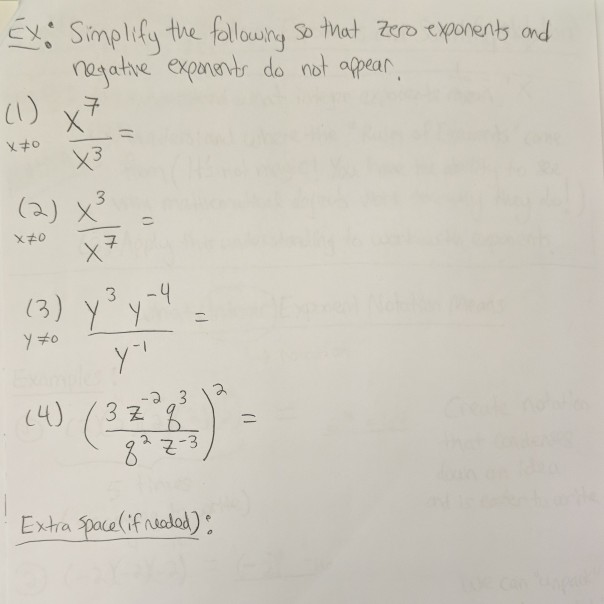 Ex: Simplify the following so that zero exponents and
negative exponents do not appear.
(1) x^7/x^3 =
x≠0
(2) x^3/x^7 =
x≠0
(3) y^3 y^-4/y^-1 =
y≠0
(4) (3 z^-2 q^3/q^2 z^-3)^2 =
Extra space (if needed):